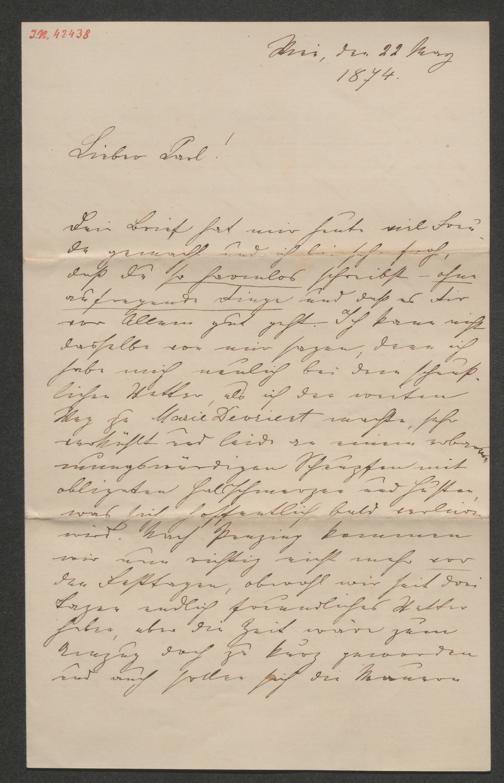 J.N. 42438
Wien, den 22 May
1874.
Lieber Carl!
Dein Brief hat mir heute viel Freu-
de gemacht und ich bin sehr froh,
daß Du so harmlos schreibst – ohne
aufregende Dinge und daß es Dir
vor Allem gut geht. – Ich kann nicht
dasselbe von mir sagen, denn ich
habe mich neulich bei dem scheuß-
lichen Wetter, als ich den weiten
Weg zu Marie Devrient machte, sehr
verkühlt und leide an einem erbar-
mungswürdigen Schnupfen mit
obligaten Halsschmerzen und Husten,
was sich hoffentlich bald verlieren
wird. Nach Penzing kommen
wir nun richtig nicht mehr vor
den Festtagen, obwohl wir seit drei
Tagen endlich freundliches Wetter
haben, aber die Zeit wäre zum
Umzug doch zu kurz geworden
und auch sollen sich die Mauern